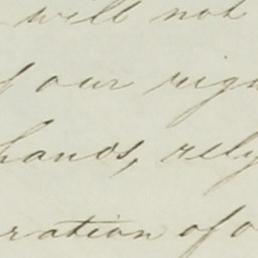 will not
of our righ
hands, rely
ration of o